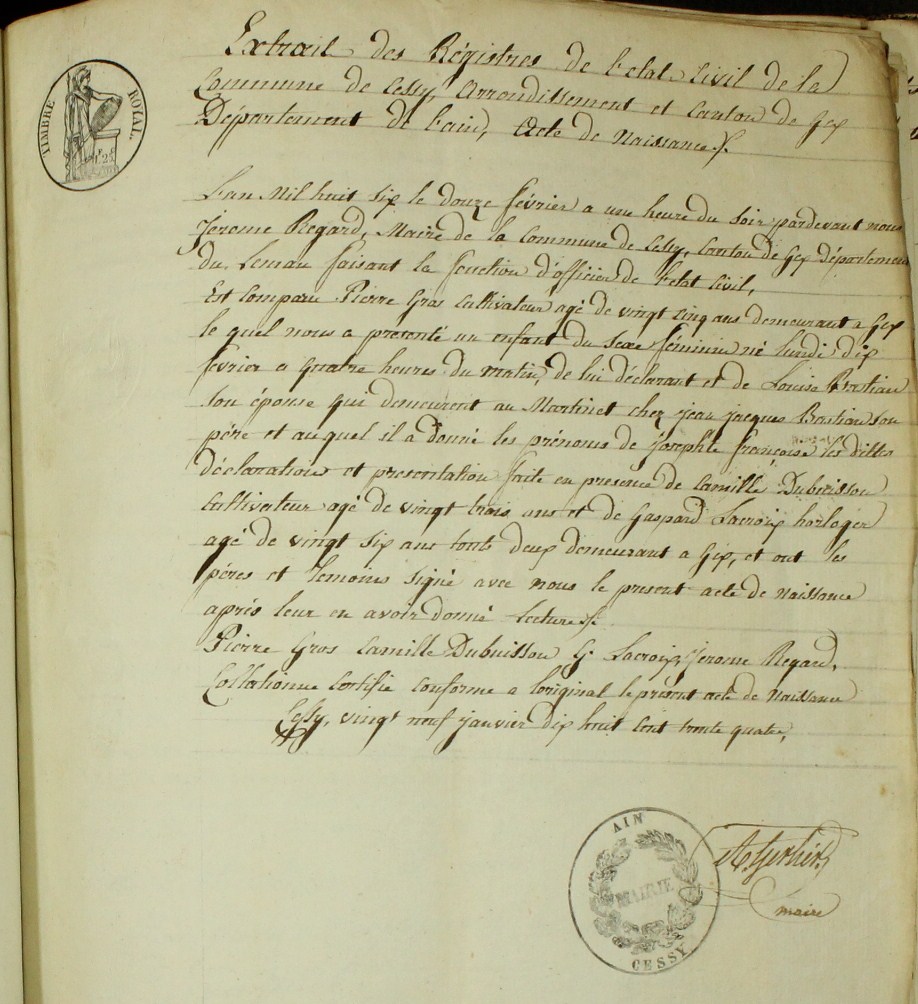 TIMBRE ROYAL
Extrait des Régistres de l'etat Civil de la
Commune de Cessy, Arrondissement et Canton de Gex
Département de l'ain, Acte de Naissance ./.
L'an Mil huit Six le douze février a une heure du soir pardevant nous
Jérome Regard, Maire de la Commune de Cessy, Canton de Gex département
du Leman faisant la fonction d'officier de l'etat Civil,
Est Comparu Pierre Gros Cultivateur agé de vingt Cinq ans demeurant a Gex
le quel nous a présenté un enfant du Sexe féminin né lundi dix
février a quatre heures du matin, de lui déclarant et de Louise Bastian
son épouse qui demeurent au Martinet chez jean jacques Bastian son
père et auquel il a donné les prénoms de josephte françoise les dittes
déclaration et presentation faite en présence de Camille Dubuisson
Cultivateur agé de vingt trois ans et de Gaspard Lacroix horloger
agé de vingt six ans touts deux demeurant a Gex, et ont les
pères et Temoins Signé avec nous le present acte de naissance
après leur en avoir donné Lecture ./.
Pierre Gros Camille Dubuisson G. Lacroix, Jerome Regard,
Collationné Certifié Conforme a l'original le présent acte de Naissance
Cessy, vingt neuf janvier dix huit Cent trente quatre,
AIN
MAIRIE
CESSY
maire